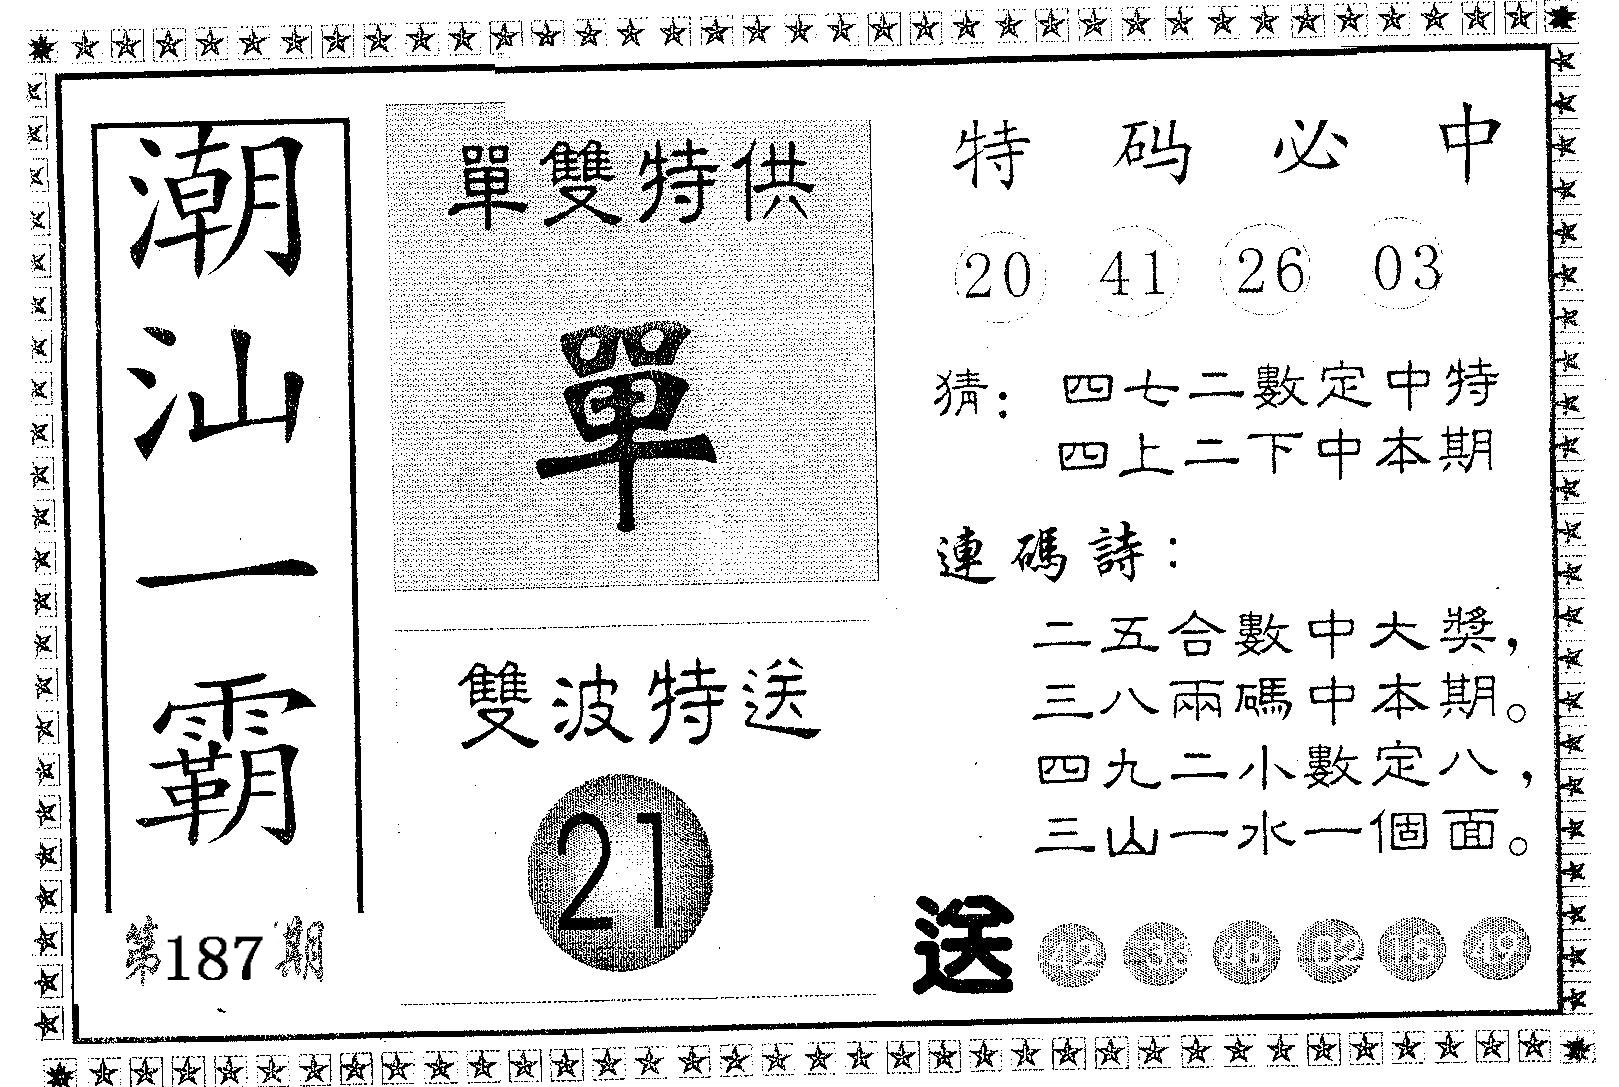 潮汕一霸
第187期
單雙特供
單
雙波特送
21
特码必中
20 41 26 03
猜：四七二數定中特
四上二下中本期
連碼詩：
二五合數中大獎，
三八兩碼中本期。
四九二小數定八，
三山一水一個面。
送 42 48 02 16 49